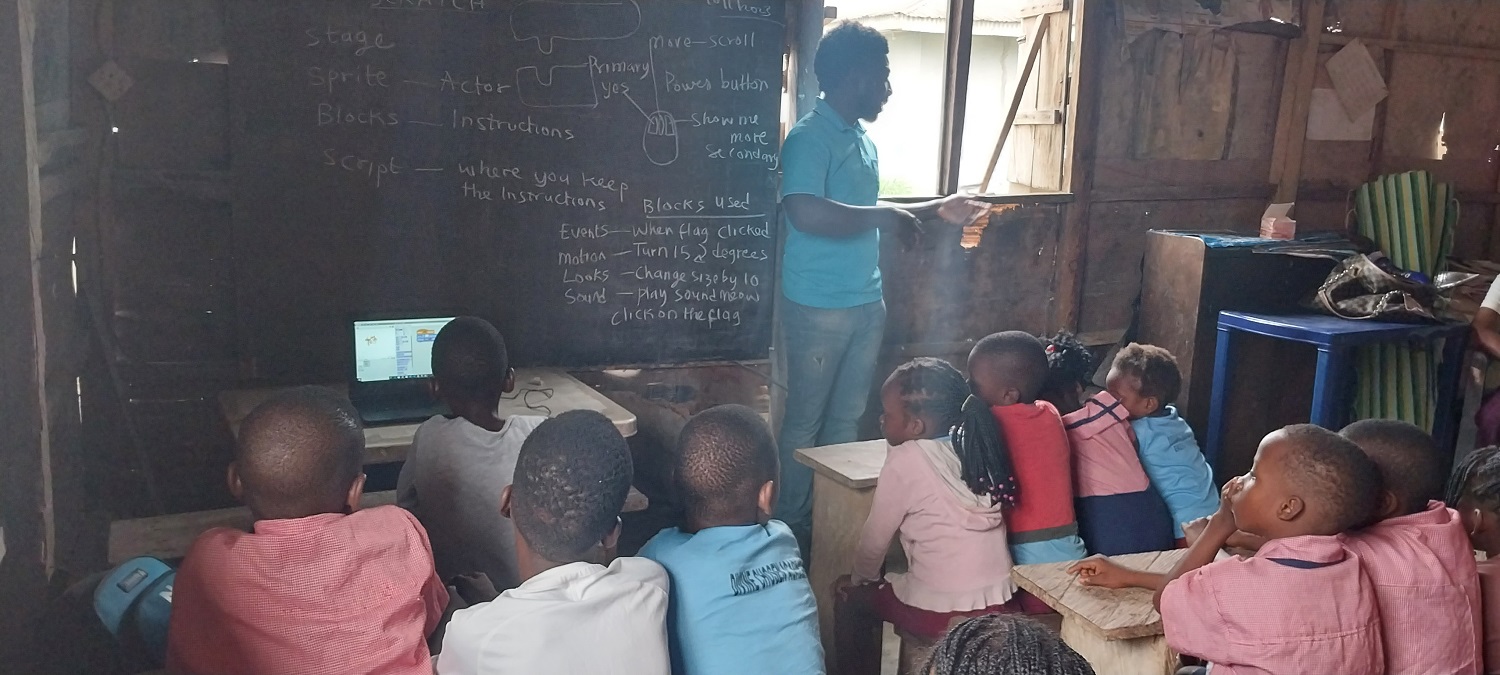 SCRATCH
Stage
Sprite — Actor
Blocks — Instructions
Script — where you keep
the Instructions
Move — scroll
Primary
yes
Power button
Show me
more
Secondary
Blocks used
Events — When flag clicked
Motion — Turn 15 degrees
Looks — Change size by 10
Sound — play sound meow
click on the flag